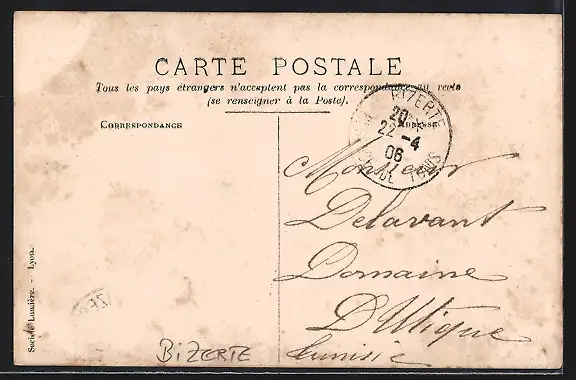 CARTE POSTALE
Tous les pays étrangers n'acceptent pas la correspondance au recto
(se renseigner à la Poste).
CORRESPONDANCE
ADRESSE
BIZERTE
22 -4
06
TUNIS
Monsieur
Delavant
Domaine
D'Utique
Tunisie
Société Lumière. - Lyon.
BIZERTE